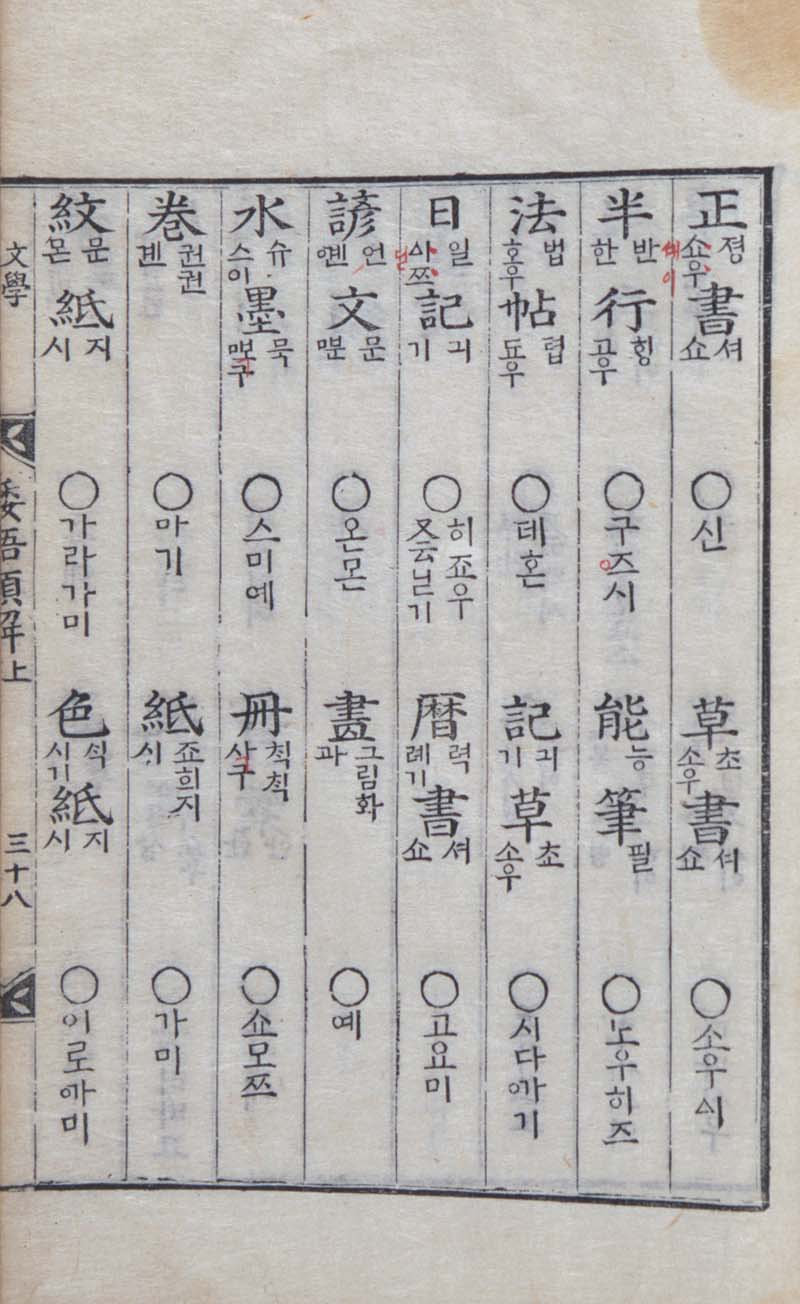 正 졍 쇼우 書 셔 쇼 ○ 신 草 초 소우 書 셔 쇼 ○ 소우시
半 반 한 行 힝 공우 ○ 구즈시 能 능 筆 필 ○ 노우히즈
法 법 호우 帖 텹 됴우 ○ 데혼 記 긔 기 草 초 소우 ○ 시다ᅁᅡ기
日 일 記 긔 기 ○ 히죠우 又云닏기 曆 력 례기 書 셔 쇼 ○ 고요미
諺 언 ᅁᅧᆫ 文 문 ᄤᅮᆫ ○ 온몬 畫 그림화 과 ○ 예
水 슈 스이 墨 묵 ○ 스미예 冊 ᄎᆡᆨᄎᆡᆨ 사구 ○ 쇼모쯔
巻 권권 견 ○ 마기 紙 죠희지 시 ○ 가미
紋 문 몬 紙 지 시 ○ 가라가미 色 ᄉᆡᆨ 시기 紙 지 시 ○ 이로ᅁᅡ미
文學 倭語類解上 三十八